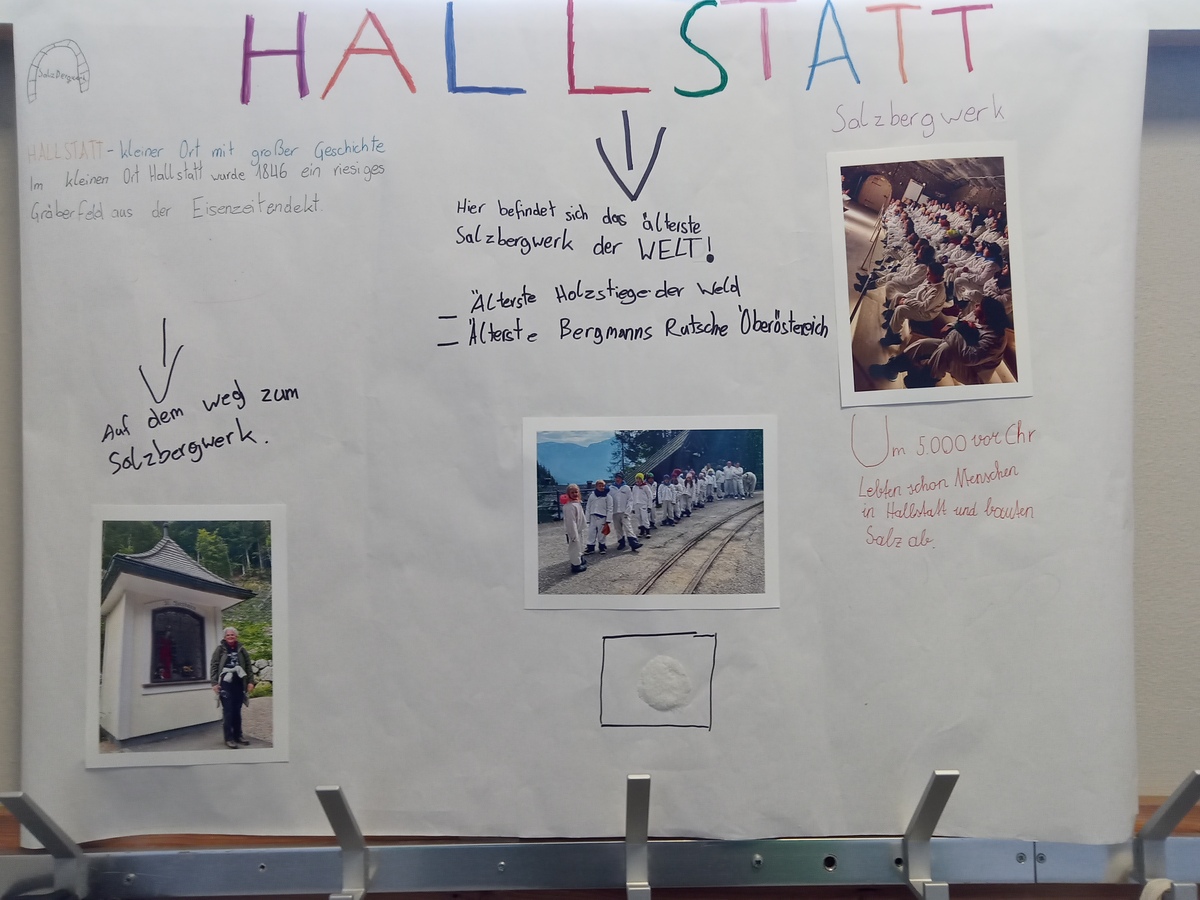 HALLSTATT
Salzbergwerk
HALLSTATT - kleiner Ort mit großer Geschichte
Im kleinen Ort Hallstatt wurde 1846 ein riesiges
Gräberfeld aus der Eisenzeitendekt.
Auf dem weg zum
Salzbergwerk.
Hier befindet sich das älterste
Salzbergwerk der WELT!
- Älterste Holzstiege der Weld
- Älterste Bergmanns Rutsche Oberöstereich
Salzbergwerk
Um 5.000 vor Chr
Lebten schon Menschen
in Hallstatt und bauten
Salz ab.